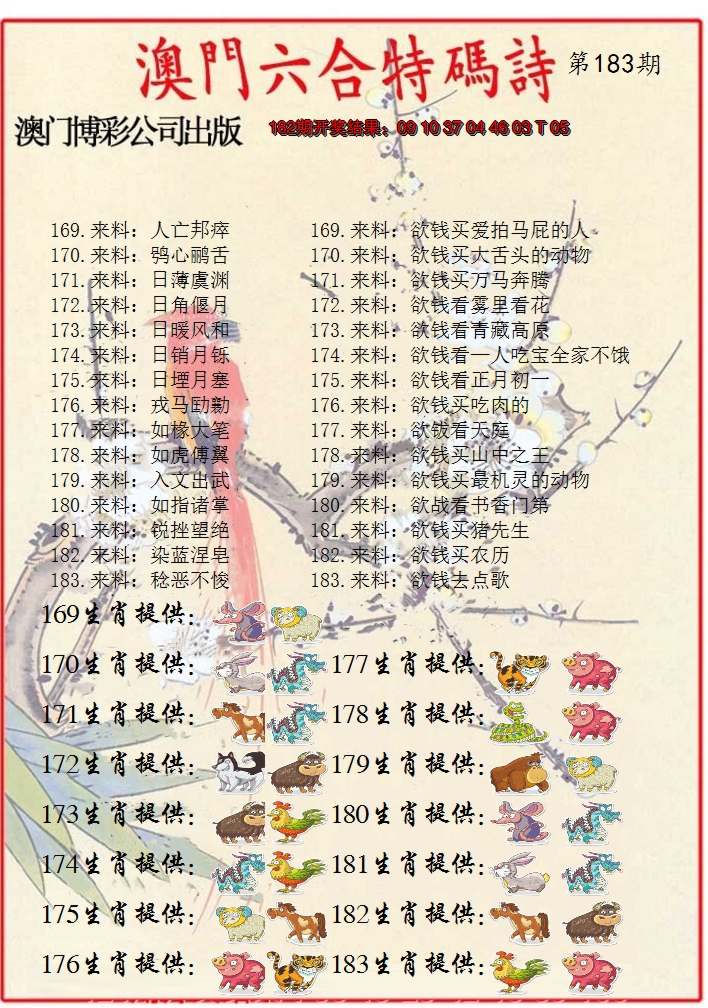 澳門六合特碼詩 第183期
澳门博彩公司出版 182期开奖结果：09 10 37 04 46 03 T 05
169.来料：人亡邦瘁 169.来料：欲钱买爱拍马屁的人
170.来料：鸮心鹂舌 170.来料：欲钱买大舌头的动物
171.来料：日薄虞渊 171.来料：欲钱买万马奔腾
172.来料：日角偃月 172.来料：欲钱看雾里看花
173.来料：日暖风和 173.来料：欲钱看青藏高原
174.来料：日销月铄 174.来料：欲钱看一人吃宝全家不饿
175.来料：日堙月塞 175.来料：欲钱看正月初一
176.来料：戎马劻勷 176.来料：欲钱买吃肉的
177.来料：如椽大笔 177.来料：欲钹看天庭
178.来料：如虎傅翼 178.来料：欲钱买山中之王
179.来料：入文出武 179.来料：欲钱买最机灵的动物
180.来料：如指诸掌 180.来料：欲战看书香门第
181.来料：锐挫望绝 181.来料：欲钱买猪先生
182.来料：染蓝涅皂 182.来料：欲钱买农历
183.来料：稔恶不悛 183.来料：欲钱去点歌
169生肖提供：
170生肖提供： 177生肖提供：
171生肖提供： 178生肖提供：
172生肖提供： 179生肖提供：
173生肖提供： 180生肖提供：
174生肖提供： 181生肖提供：
175生肖提供： 182生肖提供：
176生肖提供： 183生肖提供：